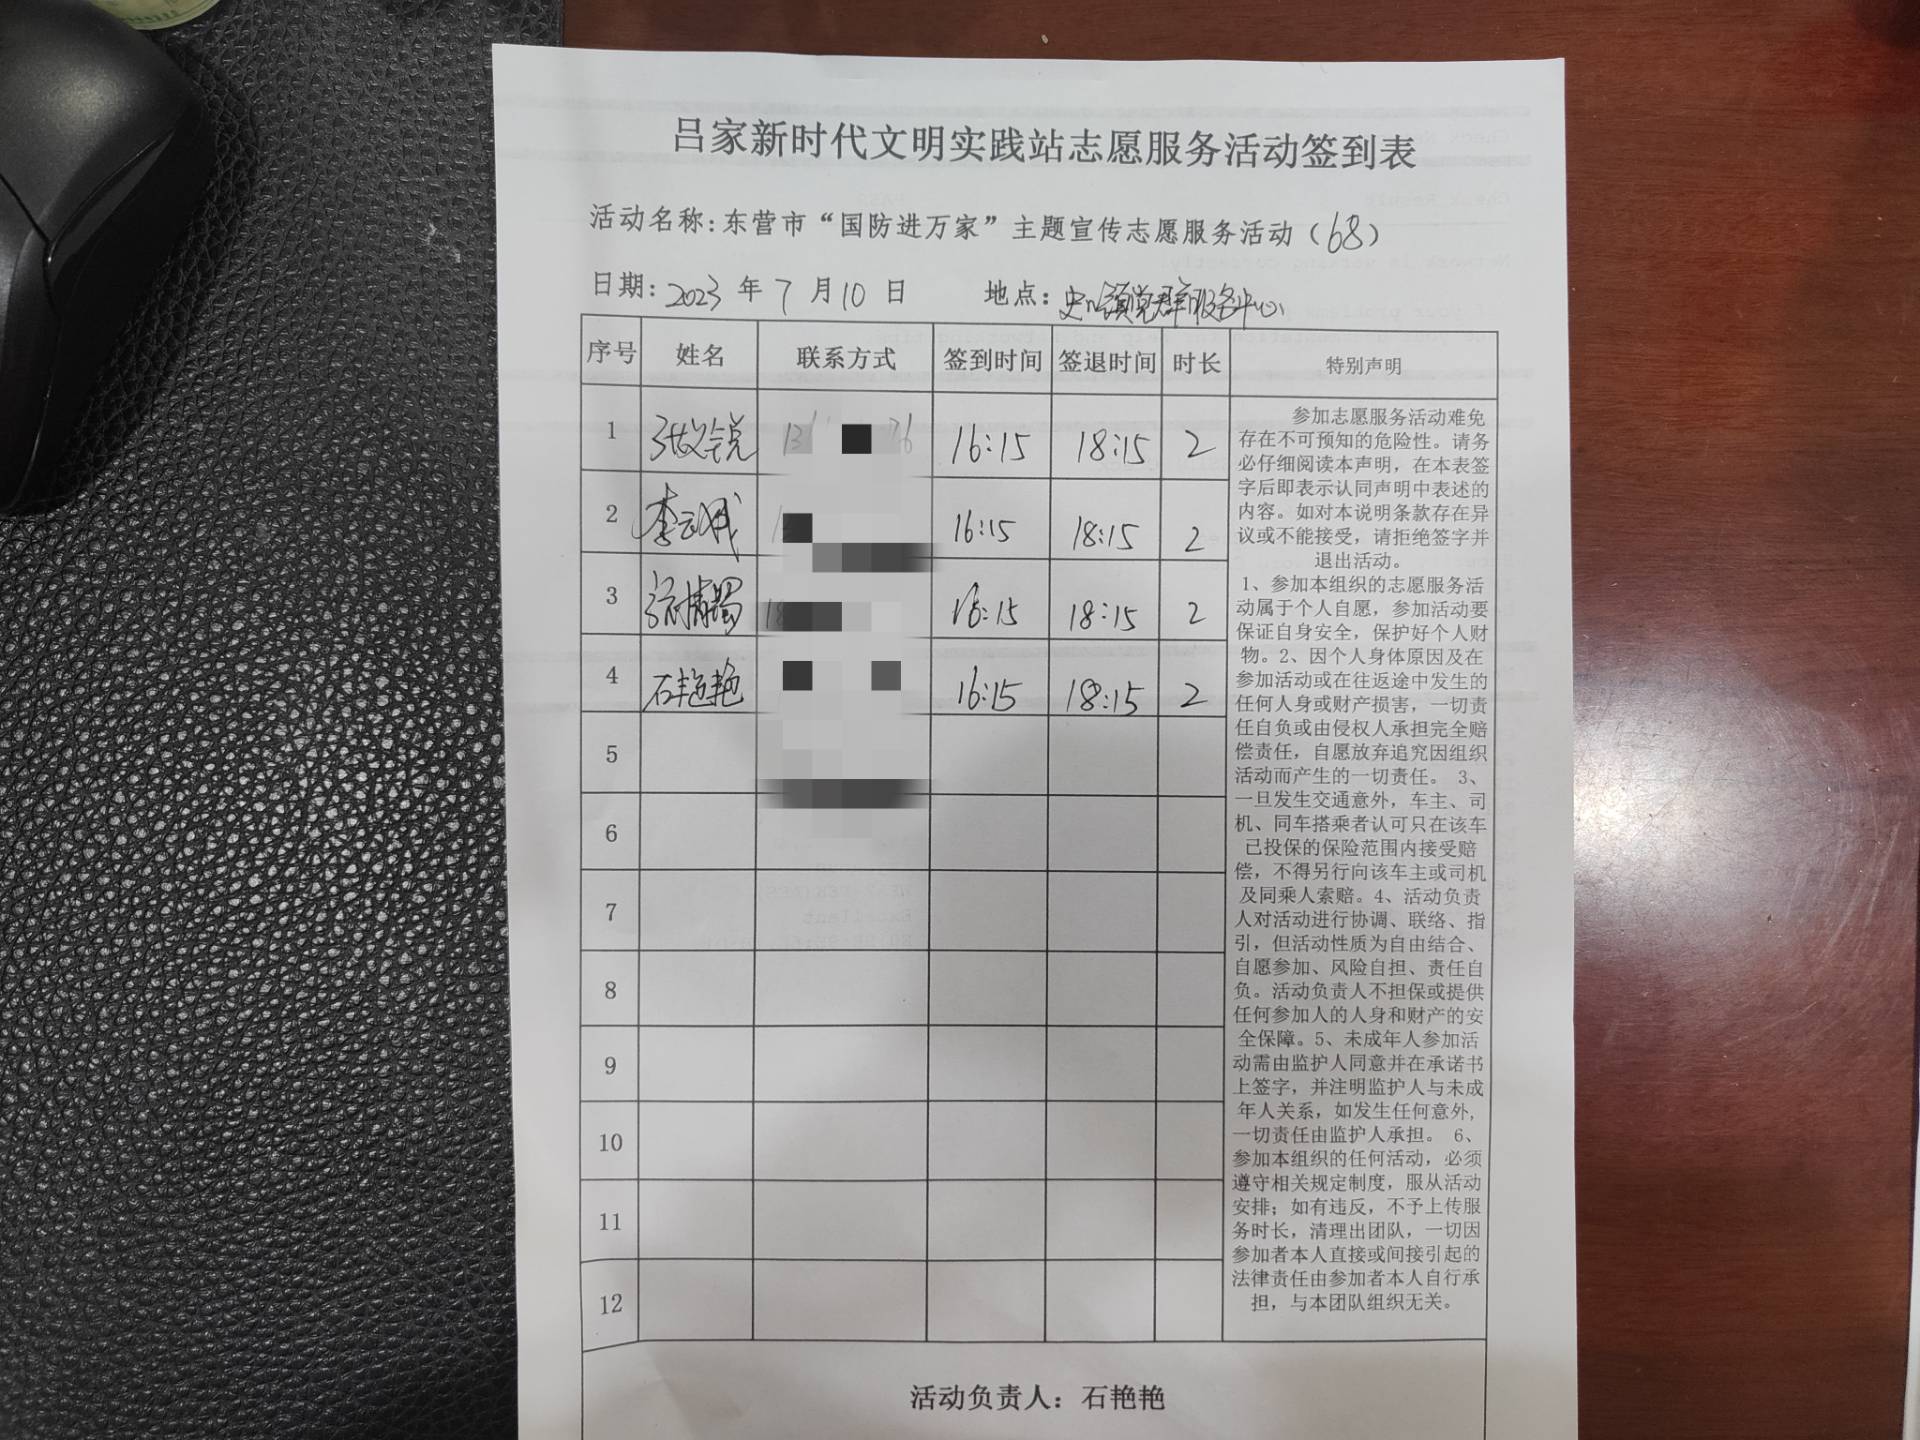 吕家新时代文明实践站志愿服务活动签到表
活动名称:东营市“国防进万家”主题宣传志愿服务活动（68）
日期：2023 年 7 月 10 日 地点：史口镇党群服务中心
序号 姓名 联系方式 签到时间 签退时间 时长 特别声明
1 16:15 18:15 2
2 李云 16:15 18:15 2
3 16:15 18:15 2
4 石艳艳 16:15 18:15 2
5
6
7
8
9
10
11
12
参加志愿服务活动难免
存在不可预知的危险性。请务
必仔细阅读本声明，在本表签
字后即表示认同声明中表述的
内容。如对本说明条款存在异
议或不能接受，请拒绝签字并
退出活动。
1、参加本组织的志愿服务活
动属于个人自愿，参加活动要
保证自身安全，保护好个人财
物。2、因个人身体原因及在
参加活动或在往返途中发生的
任何人身或财产损害，一切责
任自负或由侵权人承担完全赔
偿责任，自愿放弃追究因组织
活动而产生的一切责任。 3、
一旦发生交通意外，车主、司
机、同车搭乘者认可只在该车
已投保的保险范围内接受赔
偿，不得另行向该车主或司机
及同乘人索赔。4、活动负责
人对活动进行协调、联络、指
引，但活动性质为自由结合、
自愿参加、风险自担、责任自
负。活动负责人不担保或提供
任何参加人的人身和财产的安
全保障。5、未成年人参加活
动需由监护人同意并在承诺书
上签字，并注明监护人与未成
年人关系，如发生任何意外，
一切责任由监护人承担。 6、
参加本组织的任何活动，必须
遵守相关规定制度，服从活动
安排；如有违反，不予上传服
务时长，清理出团队，一切因
参加者本人直接或间接引起的
法律责任由参加者本人自行承
担，与本团队组织无关。
活动负责人：石艳艳